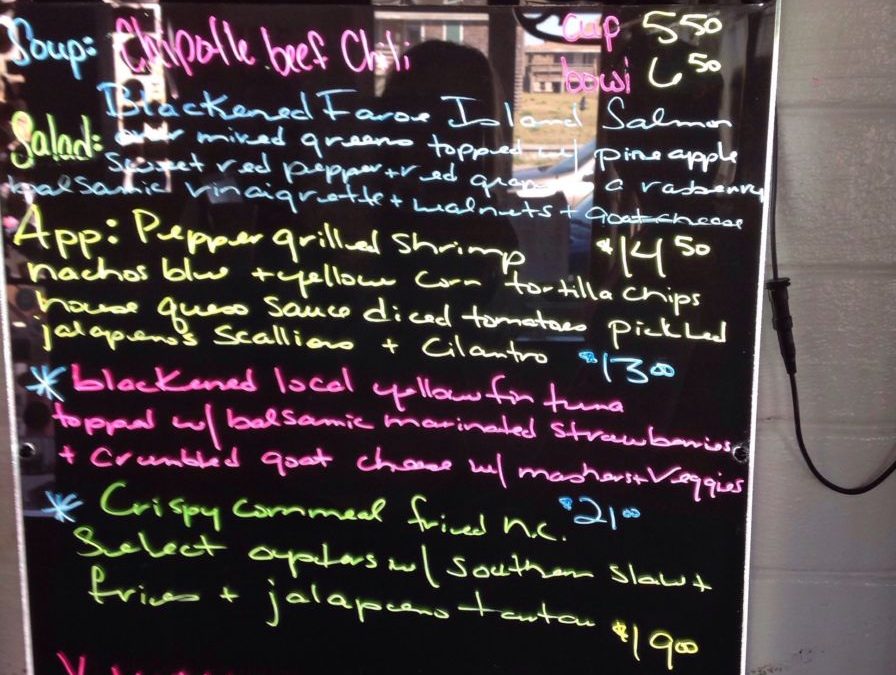 Soup: Chipotle beef Chili cup 5 50
bowl 6 50
Blackened Faroe Island Salmon
Salad: over mixed greens topped w/ pineapple
sweet red pepper + red grapes a rasberry
balsamic vinaigrette + walnuts + goat cheese
$14 50
App: Pepper grilled shrimp
nachos blue + yellow corn tortilla chips
house queso sauce diced tomatoes pickled
jalapeno's scallions + cilantro $13 00
* blackened local yellowfin tuna
topped w/ balsamic marinated strawberries
+ crumbled goat cheese w/ mashers + veggies
$21 00
* Crispy cornmeal fried n.c.
Select oysters w/ southern slaw +
fries + jalapeno tartar $19 00